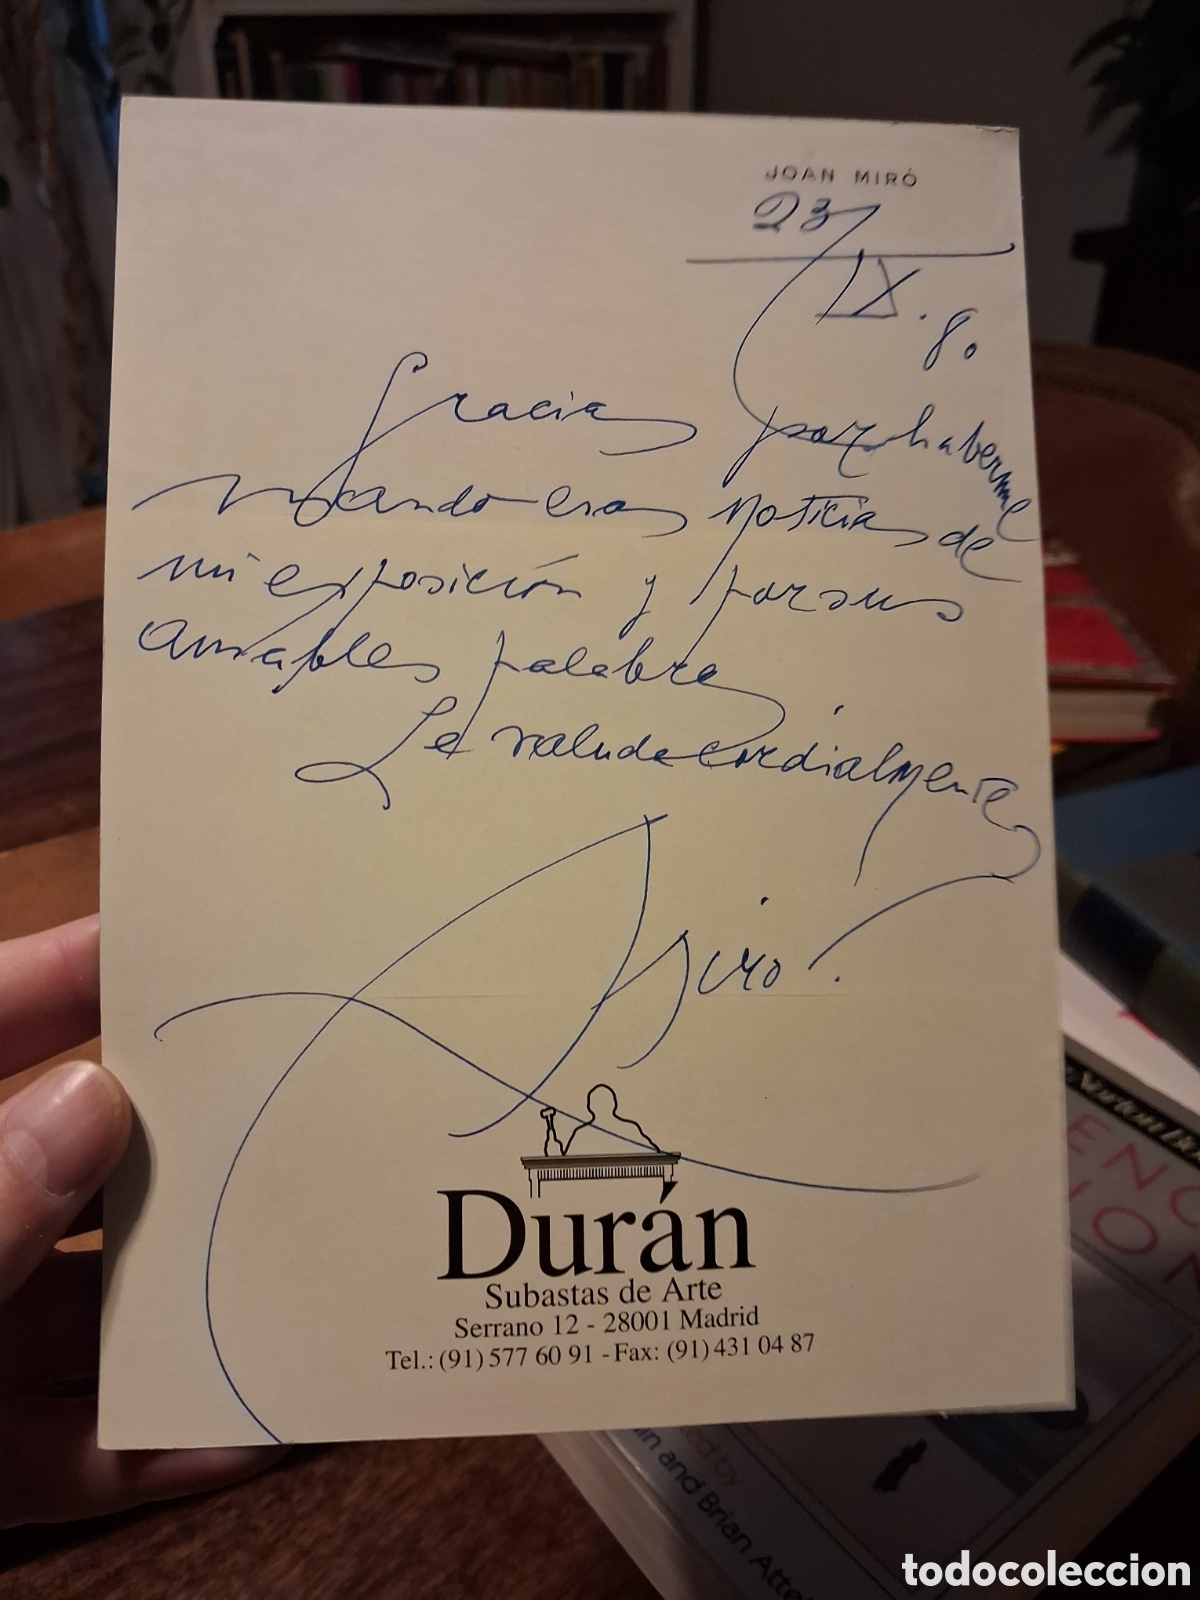 JOAN MIRÓ
23/
IX. 80
Gracias por haberme
mandado esas noticias de
mi exposición y por sus
amables palabras
Le saluda cordialmente
Miró.
Durán
Subastas de Arte
Serrano 12 - 28001 Madrid
Tel.: (91) 577 60 91 - Fax: (91) 431 04 87
ENC
ION
ed by
in and Brian Atte
todocoleccion